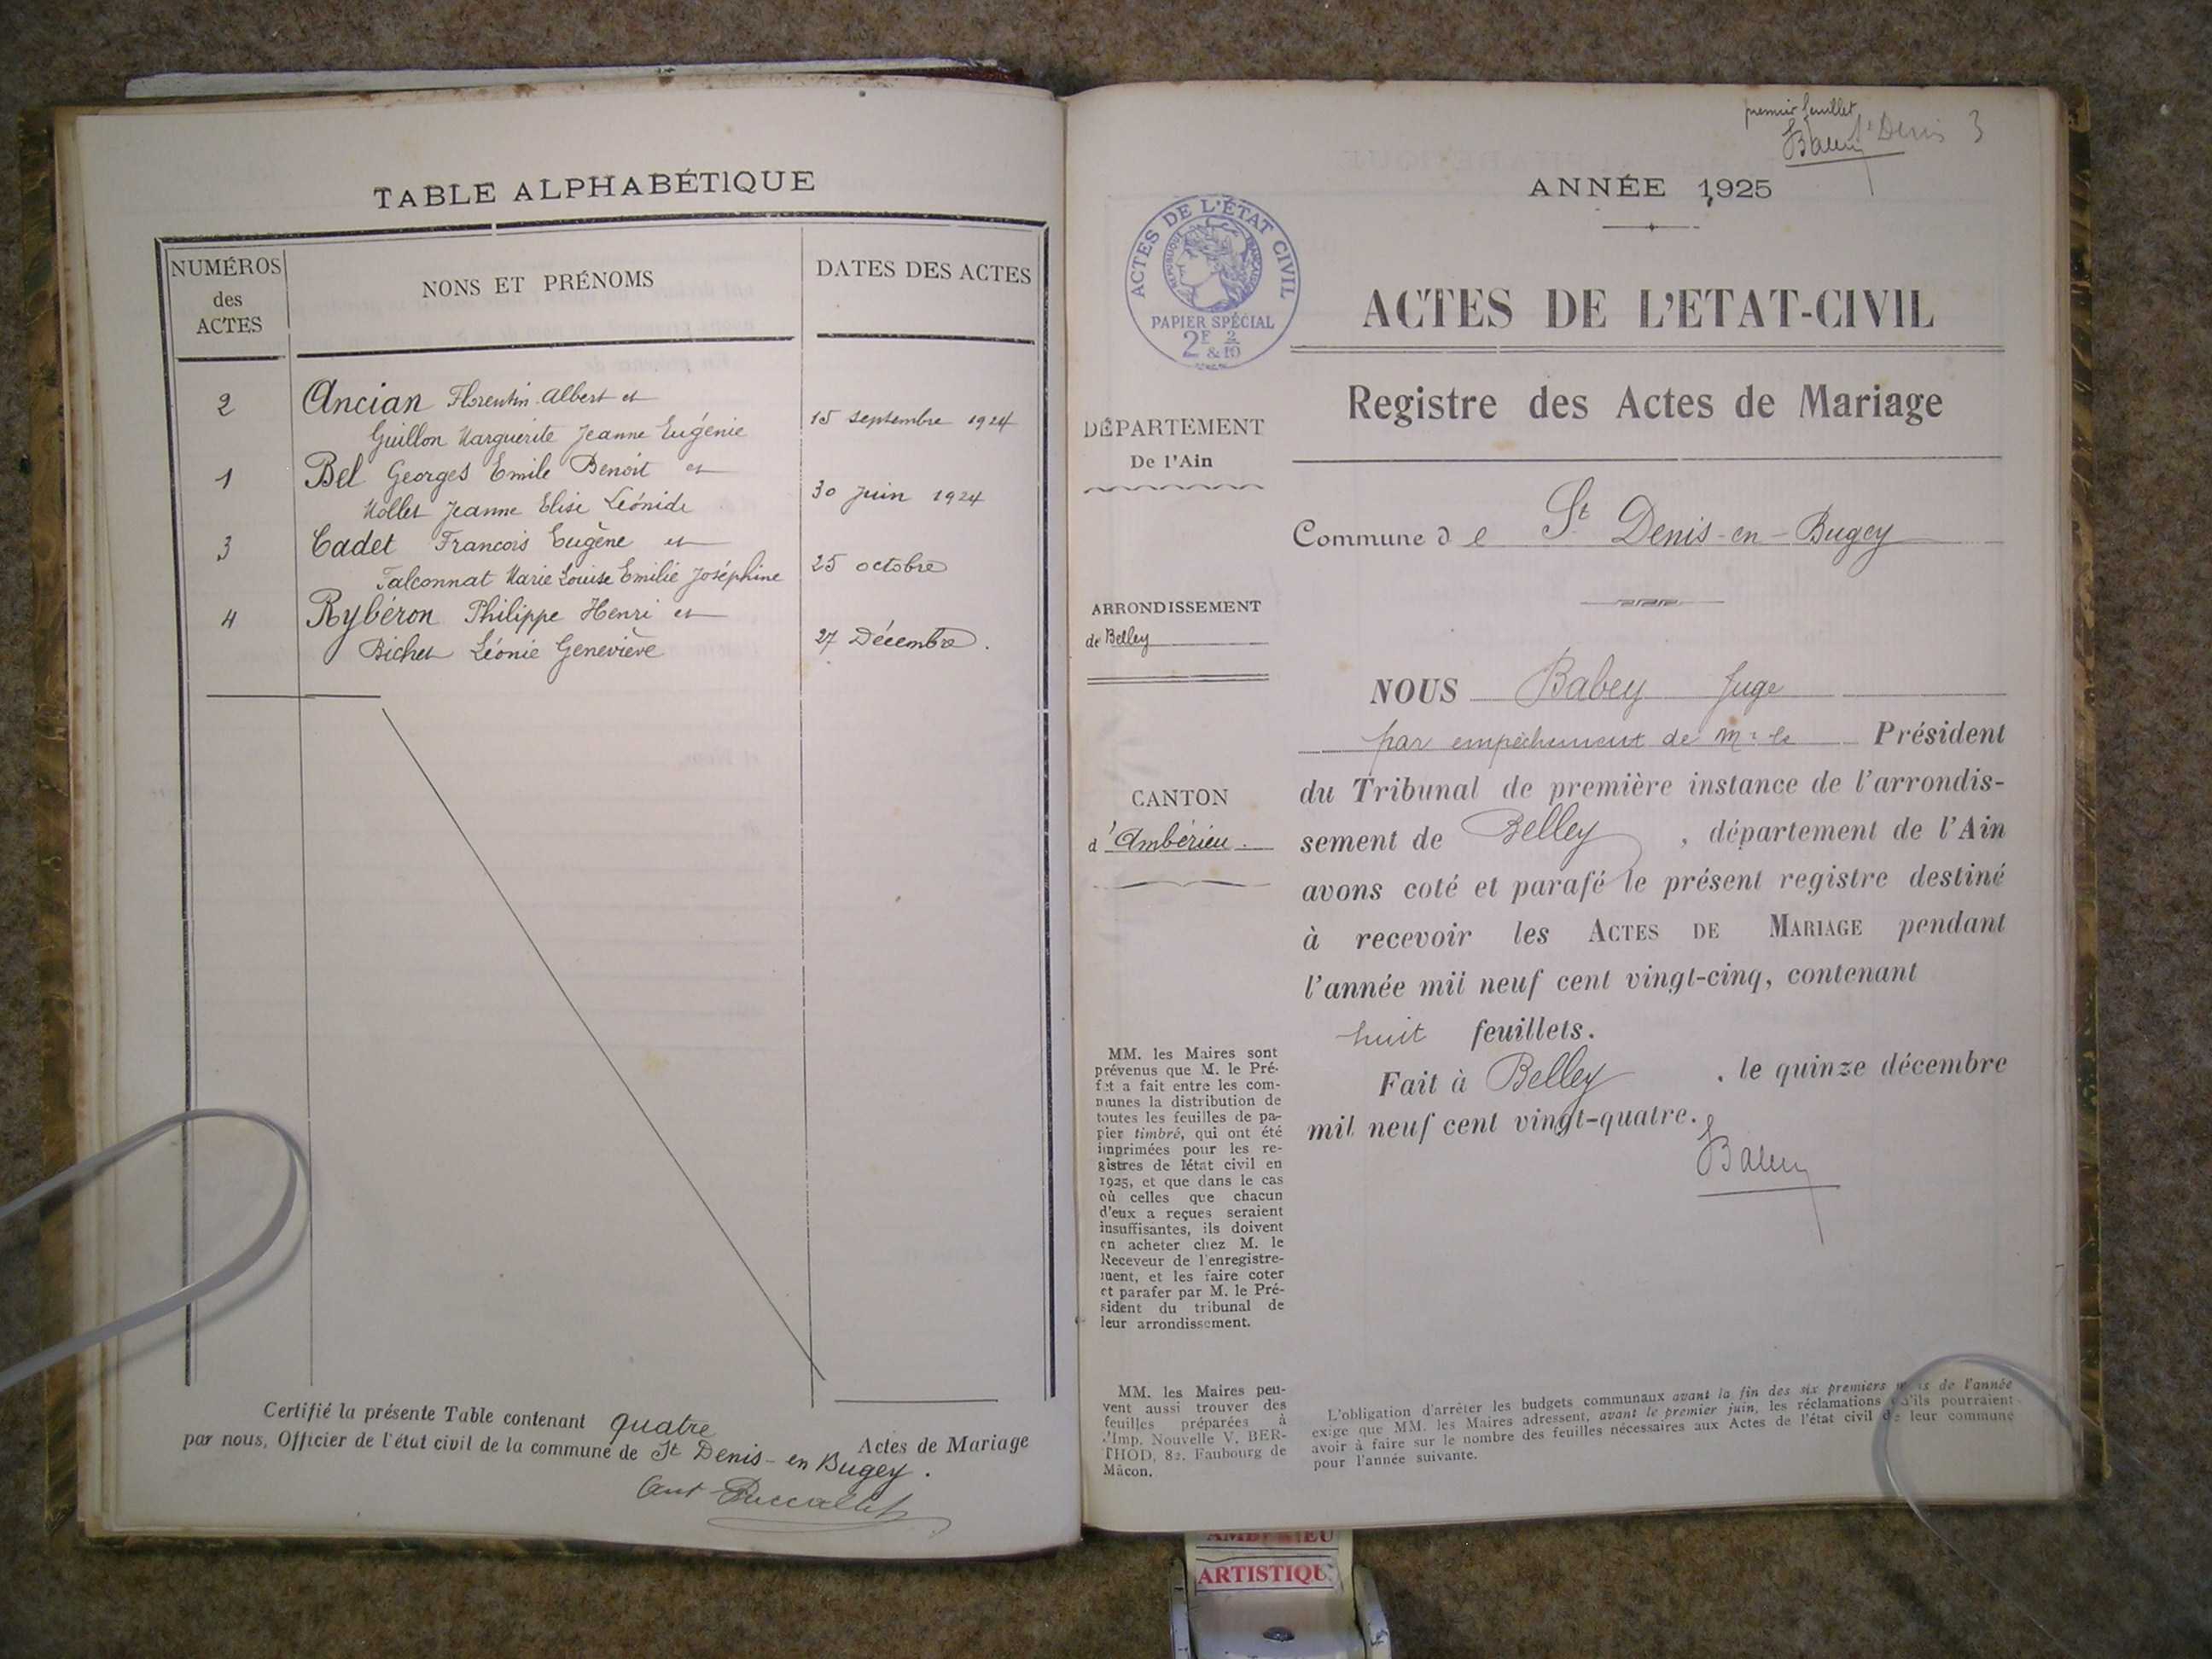 TABLE ALPHABÉTIQUE
NUMÉROS
des
ACTES
NONS ET PRÉNOMS
DATES DES ACTES
2
Ancian Florentin Albert et
Guillon Marguerite Jeanne Eugénie
15 septembre 1924
1
Bel Georges Emile Benoit et
Mollet Jeanne Elise Léonide
30 Juin 1924
3
Cadet Francois Eugène et
Falconnat Marie Louise Emilie Joséphine
25 octobre
4
Rybéron Philippe Henri et
Bichet Léonie Geneviève
27 Décembre.
Certifié la présente Table contenant quatre Actes de Mariage
par nous, Officier de l'état civil de la commune de St Denis-en Bugey.
premier feuillet
Babey
St Denis 3
ANNÉE 1925
ACTES DE L'ÉTAT CIVIL
RÉPUBLIQUE FRANÇAISE
PAPIER SPÉCIAL
2F & 2/10
ACTES DE L'ETAT-CIVIL
Registre des Actes de Mariage
DÉPARTEMENT
De l'Ain
Commune de St Denis-en-Bugey
ARRONDISSEMENT
de Belley
CANTON
d'Ambérieu.
NOUS Babey Juge
par empêchement de Mr le Président
du Tribunal de première instance de l'arrondis-
sement de Belley, département de l'Ain
avons coté et parafé le présent registre destiné
à recevoir les ACTES DE MARIAGE pendant
l'année mil neuf cent vingt-cinq, contenant
huit feuillets.
Fait à Belley, le quinze décembre
mil neuf cent vingt-quatre.
Babey
MM. les Maires sont
prévenus que M. le Pré-
fet a fait entre les com-
munes la distribution de
toutes les feuilles de pa-
pier timbré, qui ont été
imprimées pour les re-
gistres de l'état civil en
1925, et que dans le cas
où celles que chacun
d'eux a reçues seraient
insuffisantes, ils doivent
en acheter chez M. le
Receveur de l'enregistre-
ment, et les faire coter
et parafer par M. le Pré-
sident du tribunal de
leur arrondissement.
MM. les Maires peu-
vent aussi trouver des
feuilles préparées à
l'Imp. Nouvelle V. BER-
THOD, 82, Faubourg de
Mâcon.
L'obligation d'arrêter les budgets communaux avant la fin des six premiers mois de l'année
exige que MM. les Maires adressent, avant le premier juin, les réclamations qu'ils pourraient
avoir à faire sur le nombre des feuilles nécessaires aux Actes de l'état civil de leur commune
pour l'année suivante.
ARTISTIQU